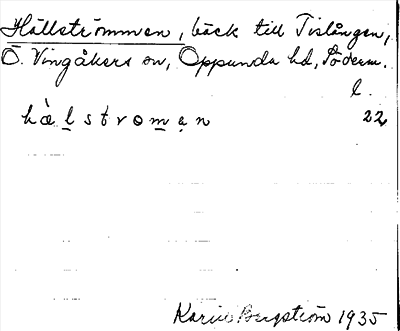 Hällströmmen, bäck till Tislången,
Ö. Vingåkers sn, Oppunda hd, Söderm.
l.
hæ̀lstroman 22
Karin Bergström 1935